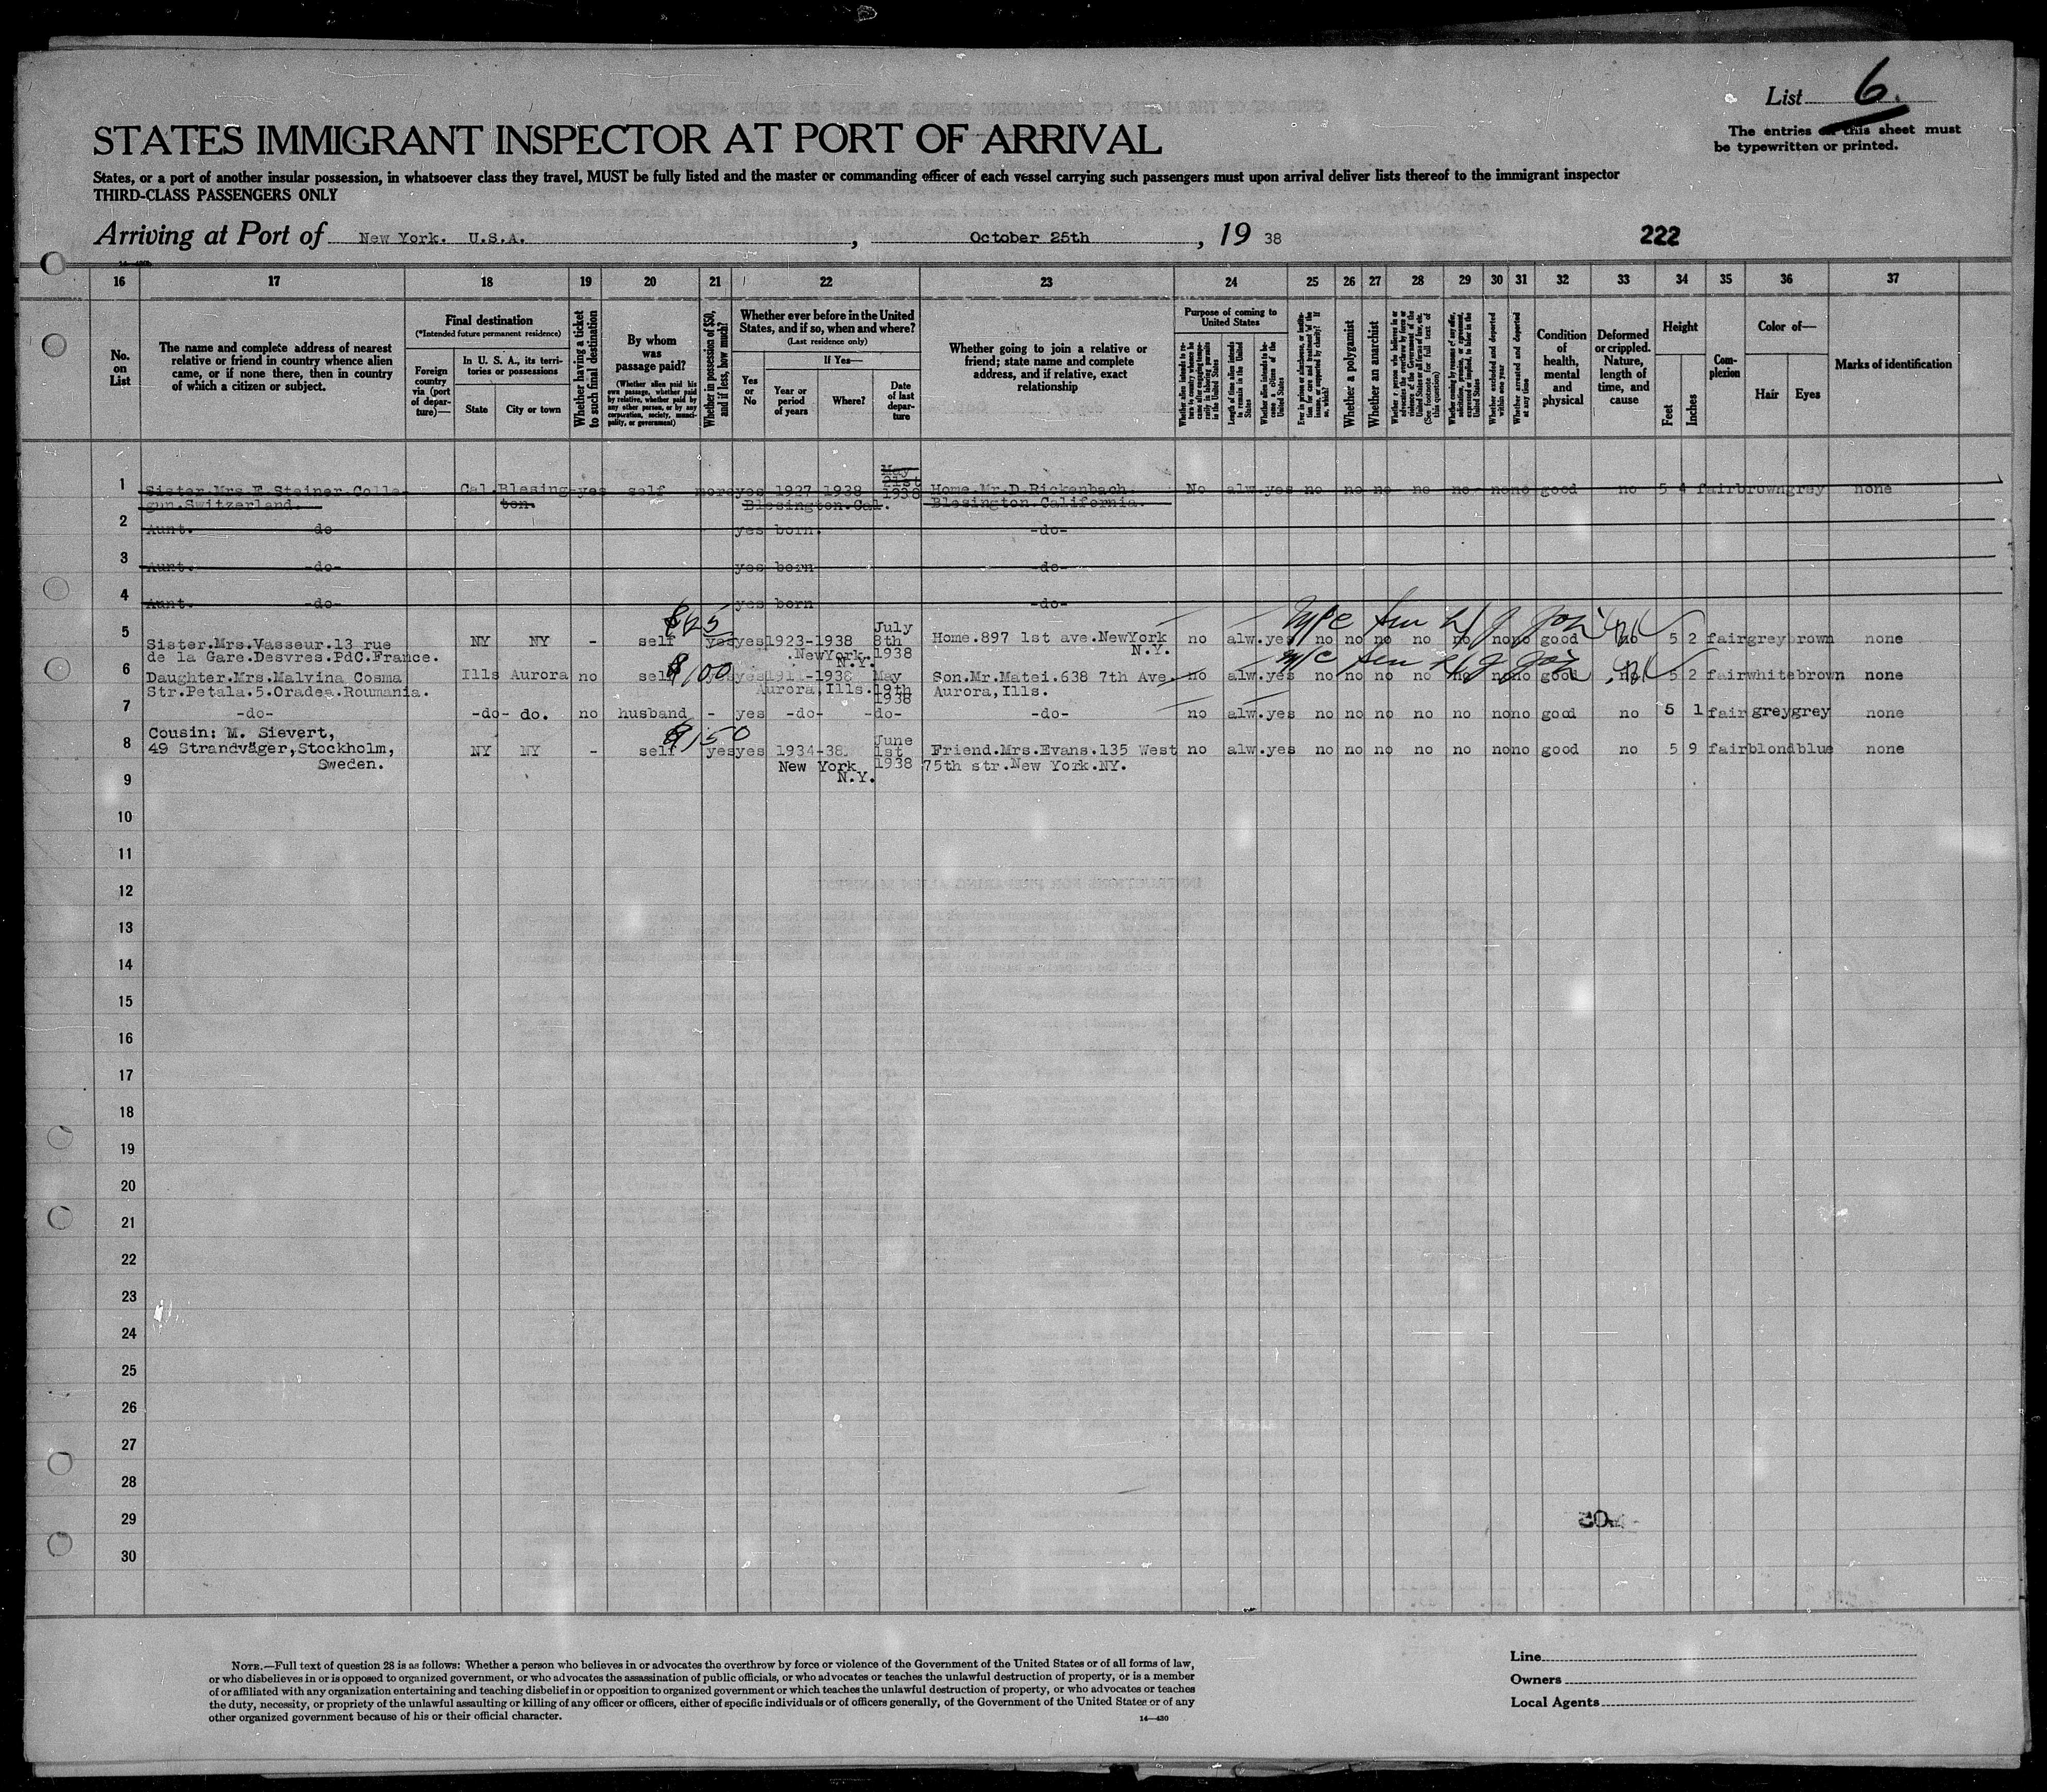 List 6.
The entries on this sheet must
be typewritten or printed.
STATES IMMIGRANT INSPECTOR AT PORT OF ARRIVAL
States, or a port of another insular possession, in whatsoever class they travel, MUST be fully listed and the master or commanding officer of each vessel carrying such passengers must upon arrival deliver lists thereof to the immigrant inspector
THIRD-CLASS PASSENGERS ONLY
Arriving at Port of New York. U.S.A. , October 25th , 19 38
222
16 17 18 19 20 21 22 23 24 25 26 27 28 29 30 31 32 33 34 35 36 37
No. on List
The name and complete address of nearest
relative or friend in country whence alien
came, or if none there, then in country
of which a citizen or subject.
Final destination
(*Intended future permanent residence)
Foreign country via (port of departure)—
In U. S. A., its territories or possessions
State
City or town
Whether having a ticket to such final destination
By whom was passage paid?
(Whether alien paid his own passage, whether paid by relative, whether paid by any other person, or by any corporation, society, municipality, or government)
Whether in possession of $50, and if less, how much?
Whether ever before in the United
States, and if so, when and where?
(Last residence only)
Yes or No
If Yes—
Year or period of years
Where?
Date of last departure
Whether going to join a relative or
friend; state name and complete
address, and if relative, exact
relationship
Purpose of coming to United States
Length of time alien intends to remain in the United States
Whether alien intends to become a citizen of the United States
Whether a polygamist
Whether an anarchist
Whether excluded and deported within one year
Whether arrested and deported at any time
Condition of health, mental and physical
Deformed or crippled. Nature, length of time, and cause
Height
Feet
Inches
Complexion
Color of—
Hair
Eyes
Marks of identification
May 21st 1938
1 Sister.Mrs.E.Steiner.Colle- Cal. Blesing- yes self more yes 1927-1938 Home.Mr.D.Rickenbach. No alw. yes no no no no no no no good no 5 4 fair brown grey none
gun.Switzerland. ton. Blesington.Cal. Blesington.California.
2 Aunt. -do- yes born. -do-
3 Aunt. -do- yes born -do-
4 Aunt. -do- yes born -do-
$25 July
5 Sister.Mrs.Vasseur.13 rue NY NY - self yes yes 1923-1938 8th Home.897 1st ave.NewYork no alw. yes no no no no no no no good no 5 2 fair grey brown none
de la Gare.Desvres.PdC.France. NewYork N.Y. 1938 N.Y.
6 Daughter.Mrs.Malvina Cosma Ills Aurora no self $100 yes yes 1911-1938 May Son.Mr.Matei.638 7th Ave. no alw. yes no no no no no no no good no 5 2 fair white brown none
Str.Petala.5.Oradea.Roumania. Aurora,Ills. 19th 1938 Aurora,Ills.
7 -do- -do- do. no husband - yes -do- -do- -do- no alw. yes no no no no no no no good no 5 1 fair grey grey none
Cousin: M. Sievert, $150 June
8 49 Strandväger,Stockholm, NY NY - self yes yes 1934-38. 1st Friend.Mrs.Evans.135 West no alw. yes no no no no no no no good no 5 9 fair blond blue none
Sweden. New York N.Y. 1938 75th str.New York.NY.
9
10
11
12
13
14
15
16
17
18
19
20
21
22
23
24
25
26
27
28
29
30
NOTE.—Full text of question 28 is as follows: Whether a person who believes in or advocates the overthrow by force or violence of the Government of the United States or of all forms of law,
or who disbelieves in or is opposed to organized government, or who advocates the assassination of public officials, or who advocates or teaches the unlawful destruction of property, or is a member
of or affiliated with any organization entertaining and teaching disbelief in or opposition to organized government or which teaches the unlawful destruction of property, or who advocates or teaches
the duty, necessity, or propriety of the unlawful assaulting or killing of any officer or officers, either of specific individuals or of officers generally, of the Government of the United States or of any
other organized government because of his or their official character.
14—430
Line
Owners
Local Agents